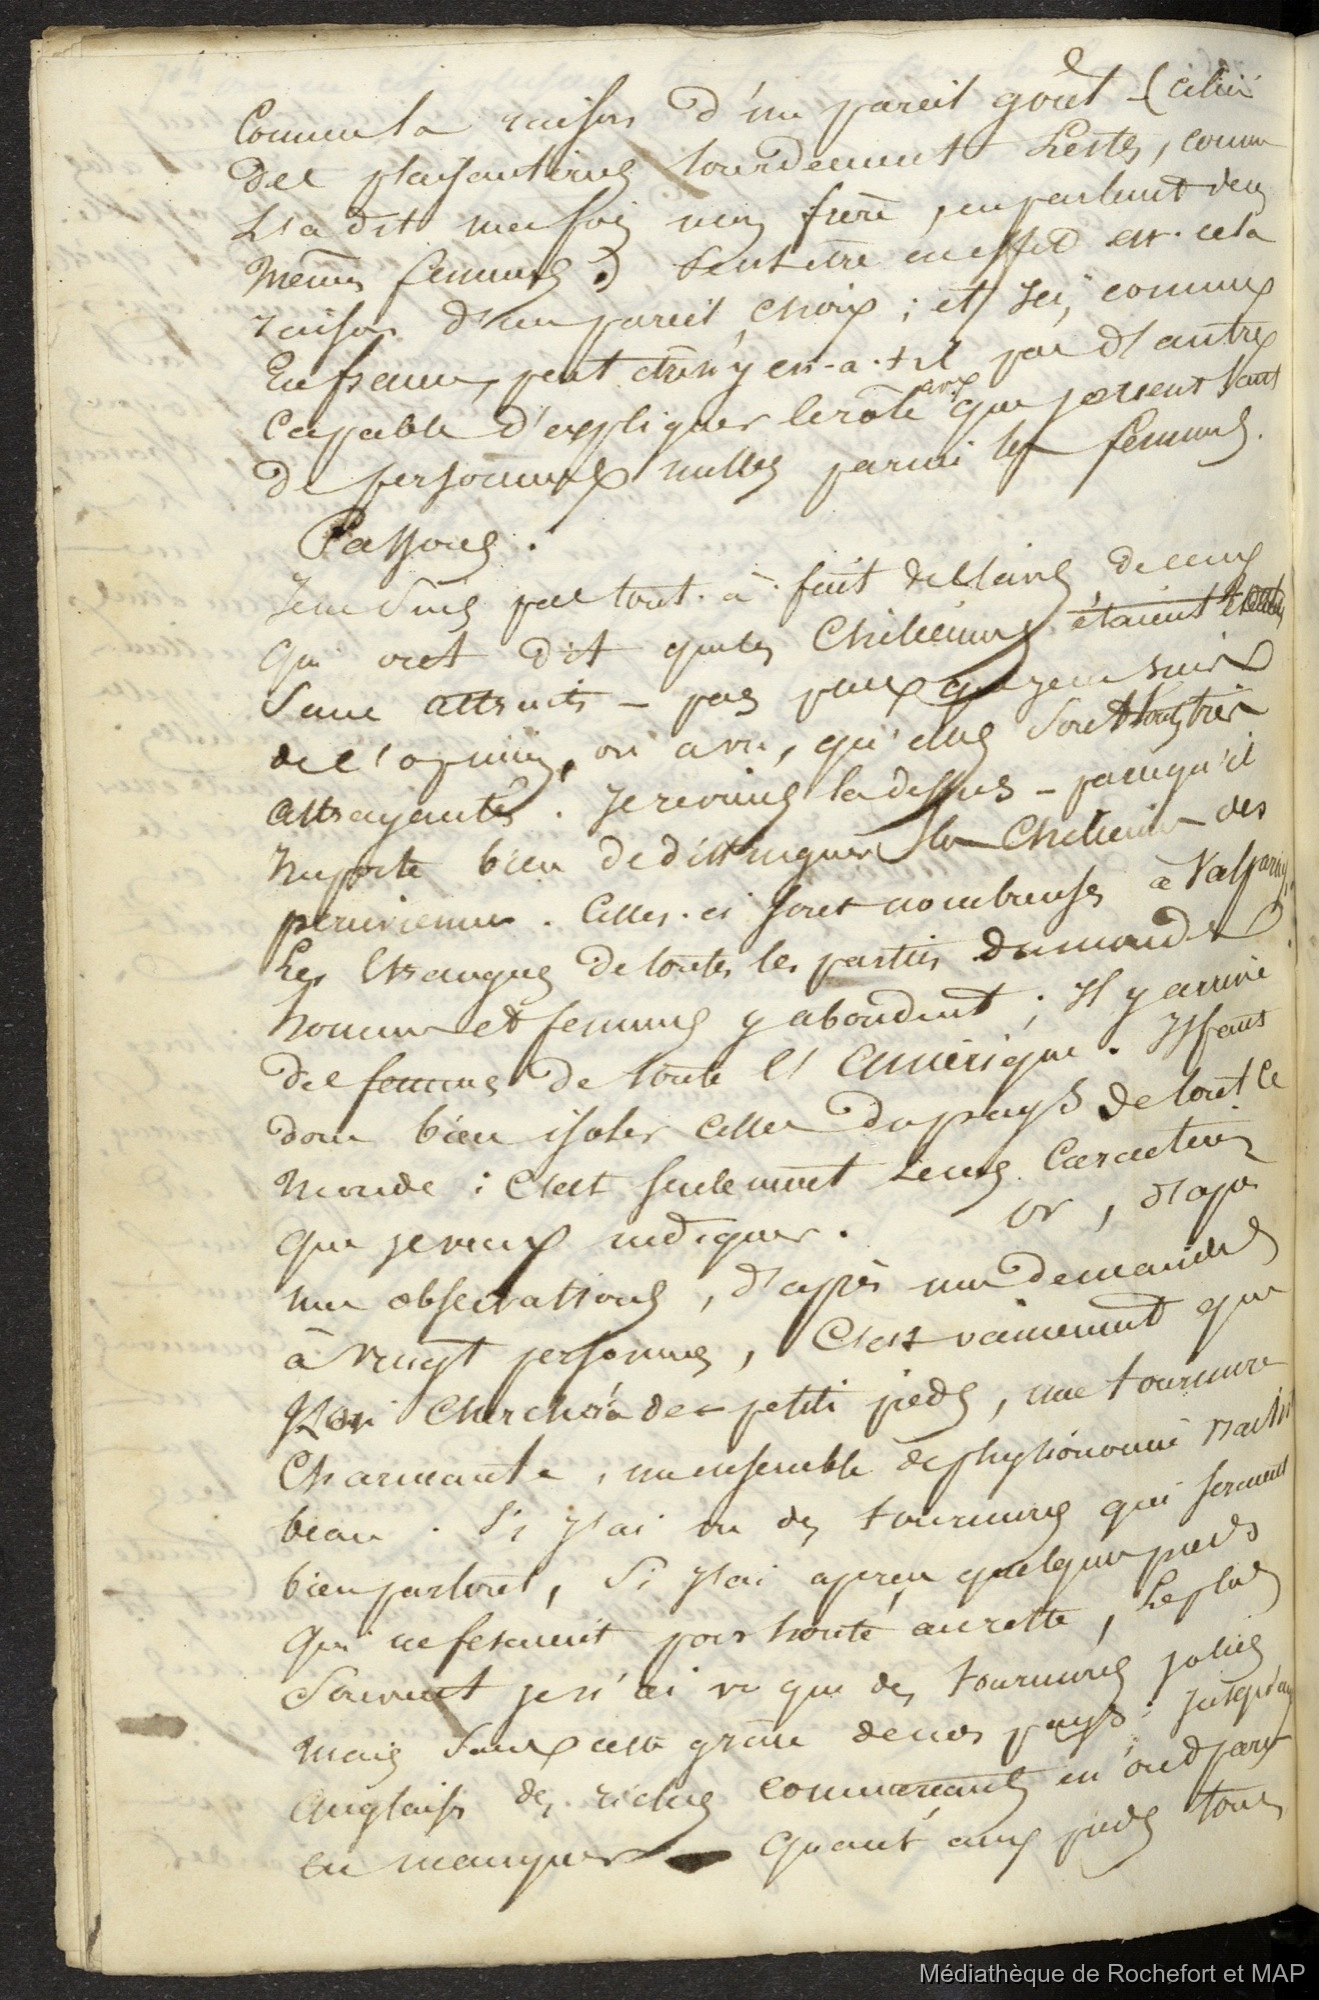 Comme la raison d'un pareil goût (celui
des plaisanteries lourdement lestes, comme
l'a dit ma foi mon frère, en parlant des
mêmes femmes) Peut être en effet est-ce la
raison d'un pareil choix ; et ici, comme
En france, peut être n'y en-a-t-il pas d'autre
Capable d'expliquer le rôle que jouent tant
de personnes nulles parmi les femmes.
Passons.
Je ne suis pas tout-à-fait de l'avis de ceux
qui ont dit que les Chiliennes étaient
sans attraits - pas plus que je ne suis
de l'opinion, on a vu, qu'elles sont très
attrayantes. Je reviens là dessus - parcequ'il
importe bien de distinguer la Chilienne des
péruviennes. Celles-ci sont nombreuses à Valparaiso,
Les Etrangers de toutes les parties du monde
hommes et femmes y abondent ; Il y arrive
des femmes de toute l'Amérique. Il faut
donc bien isoler celles du pays de tout le
monde : C'est seulement leurs Caractères
que je veux indiquer. Or, d'après
mes observations, d'après mes demandes
à vingt personnes, C'est vainement que
j'ai cherché de petits pieds, une tournure
Charmante, un ensemble de physionomie
beau. Si j'ai vu des tournures qui seraient
bien partout, Si j'ai aperçu quelques pieds
qui ne feraient pas honte au reste, Le plus
souvent je n'ai vu que des tournures jolies
mais sans cette grâce de nos pays : jusqu'aux
anglaises des riches commerçants en ont paru
en manquer Quant aux pieds tous
Médiathèque de Rochefort et MAP